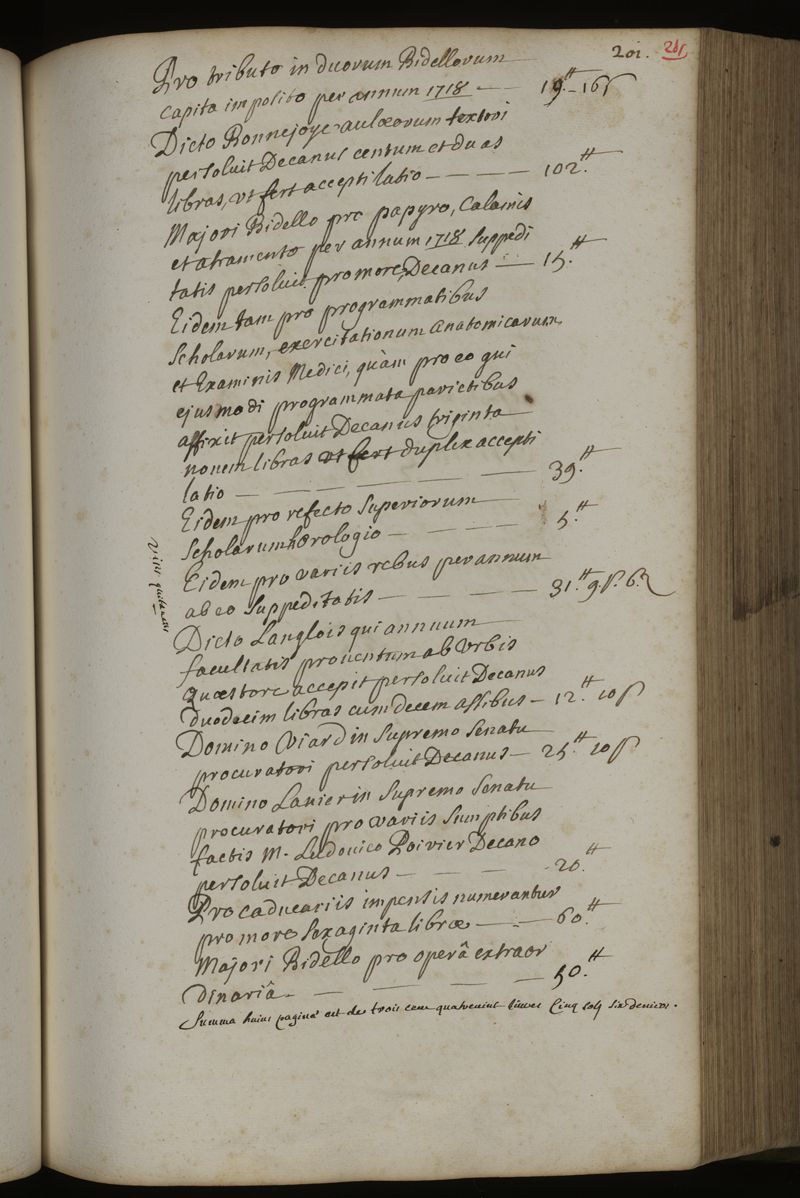 201. 201
Pro tributo in duorum Bidellorum
capita imposito per annum 1718 — 19.tt–16ſ
Dicto Bonnejoye aulæorum textori
persoluit Decanus centum et duas
libras, vt fert acceptilatio — — — — 102.tt
Majori Bidello pro papyro, Calamis
et atramento per annum 1718 suppedi
tatis persoluit pro more Decanus — 15.tt
Eidem tam pro programmatibus
Scholarum, exercitationum anatomicarum
et Examinis Medici, quàm pro eo qui
ejusmodi programmata parietibus
affixit persoluit Decanus triginta
nouem libras vt fert duplex accepti
latio — — — — — — 39.tt
Eidem pro refecto superiorum
Scholarum horologio — — — — 5.tt
Eidem pro variis rebus per annum
ab eo suppeditatis — — — — 31.tt 9ſ. 6.
Dicto Langlois qui annuum
facultatis prouentum ab Vrbis
quæstore accepit persoluit Decanus
duodecim libras cum decem assibus — 12.tt 10ſ
Domino Viard in supremo senatu
procuratori persoluit Decanus — 25.tt 10ſ
Domino Lanier in supremo senatu
procuratori pro variis sumptibus
factis M. Ludouico Poirier Decano
persoluit Decanus — — — 20.tt
Pro caduceariis impensis numerantur
pro more sexaginta libræ — — 60.tt
Majori Bidello pro operâ extraor
dinariâ — — — — 50.tt
Summa huius paginæ est de trois cent quatrevint liures Cinq sols six deniers.